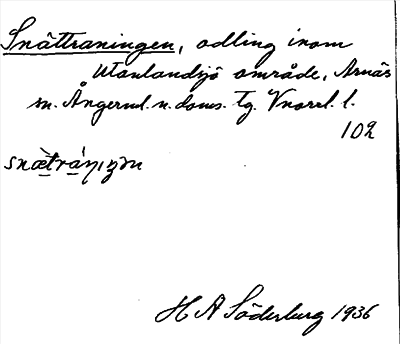 Snättraningen, odling inom
Utanlandsjö område, Arnäs
sn. Ångerml. n. doms. tg. Vnorrl. l.
102
snætráŋıŋən
H A Söderberg 1936